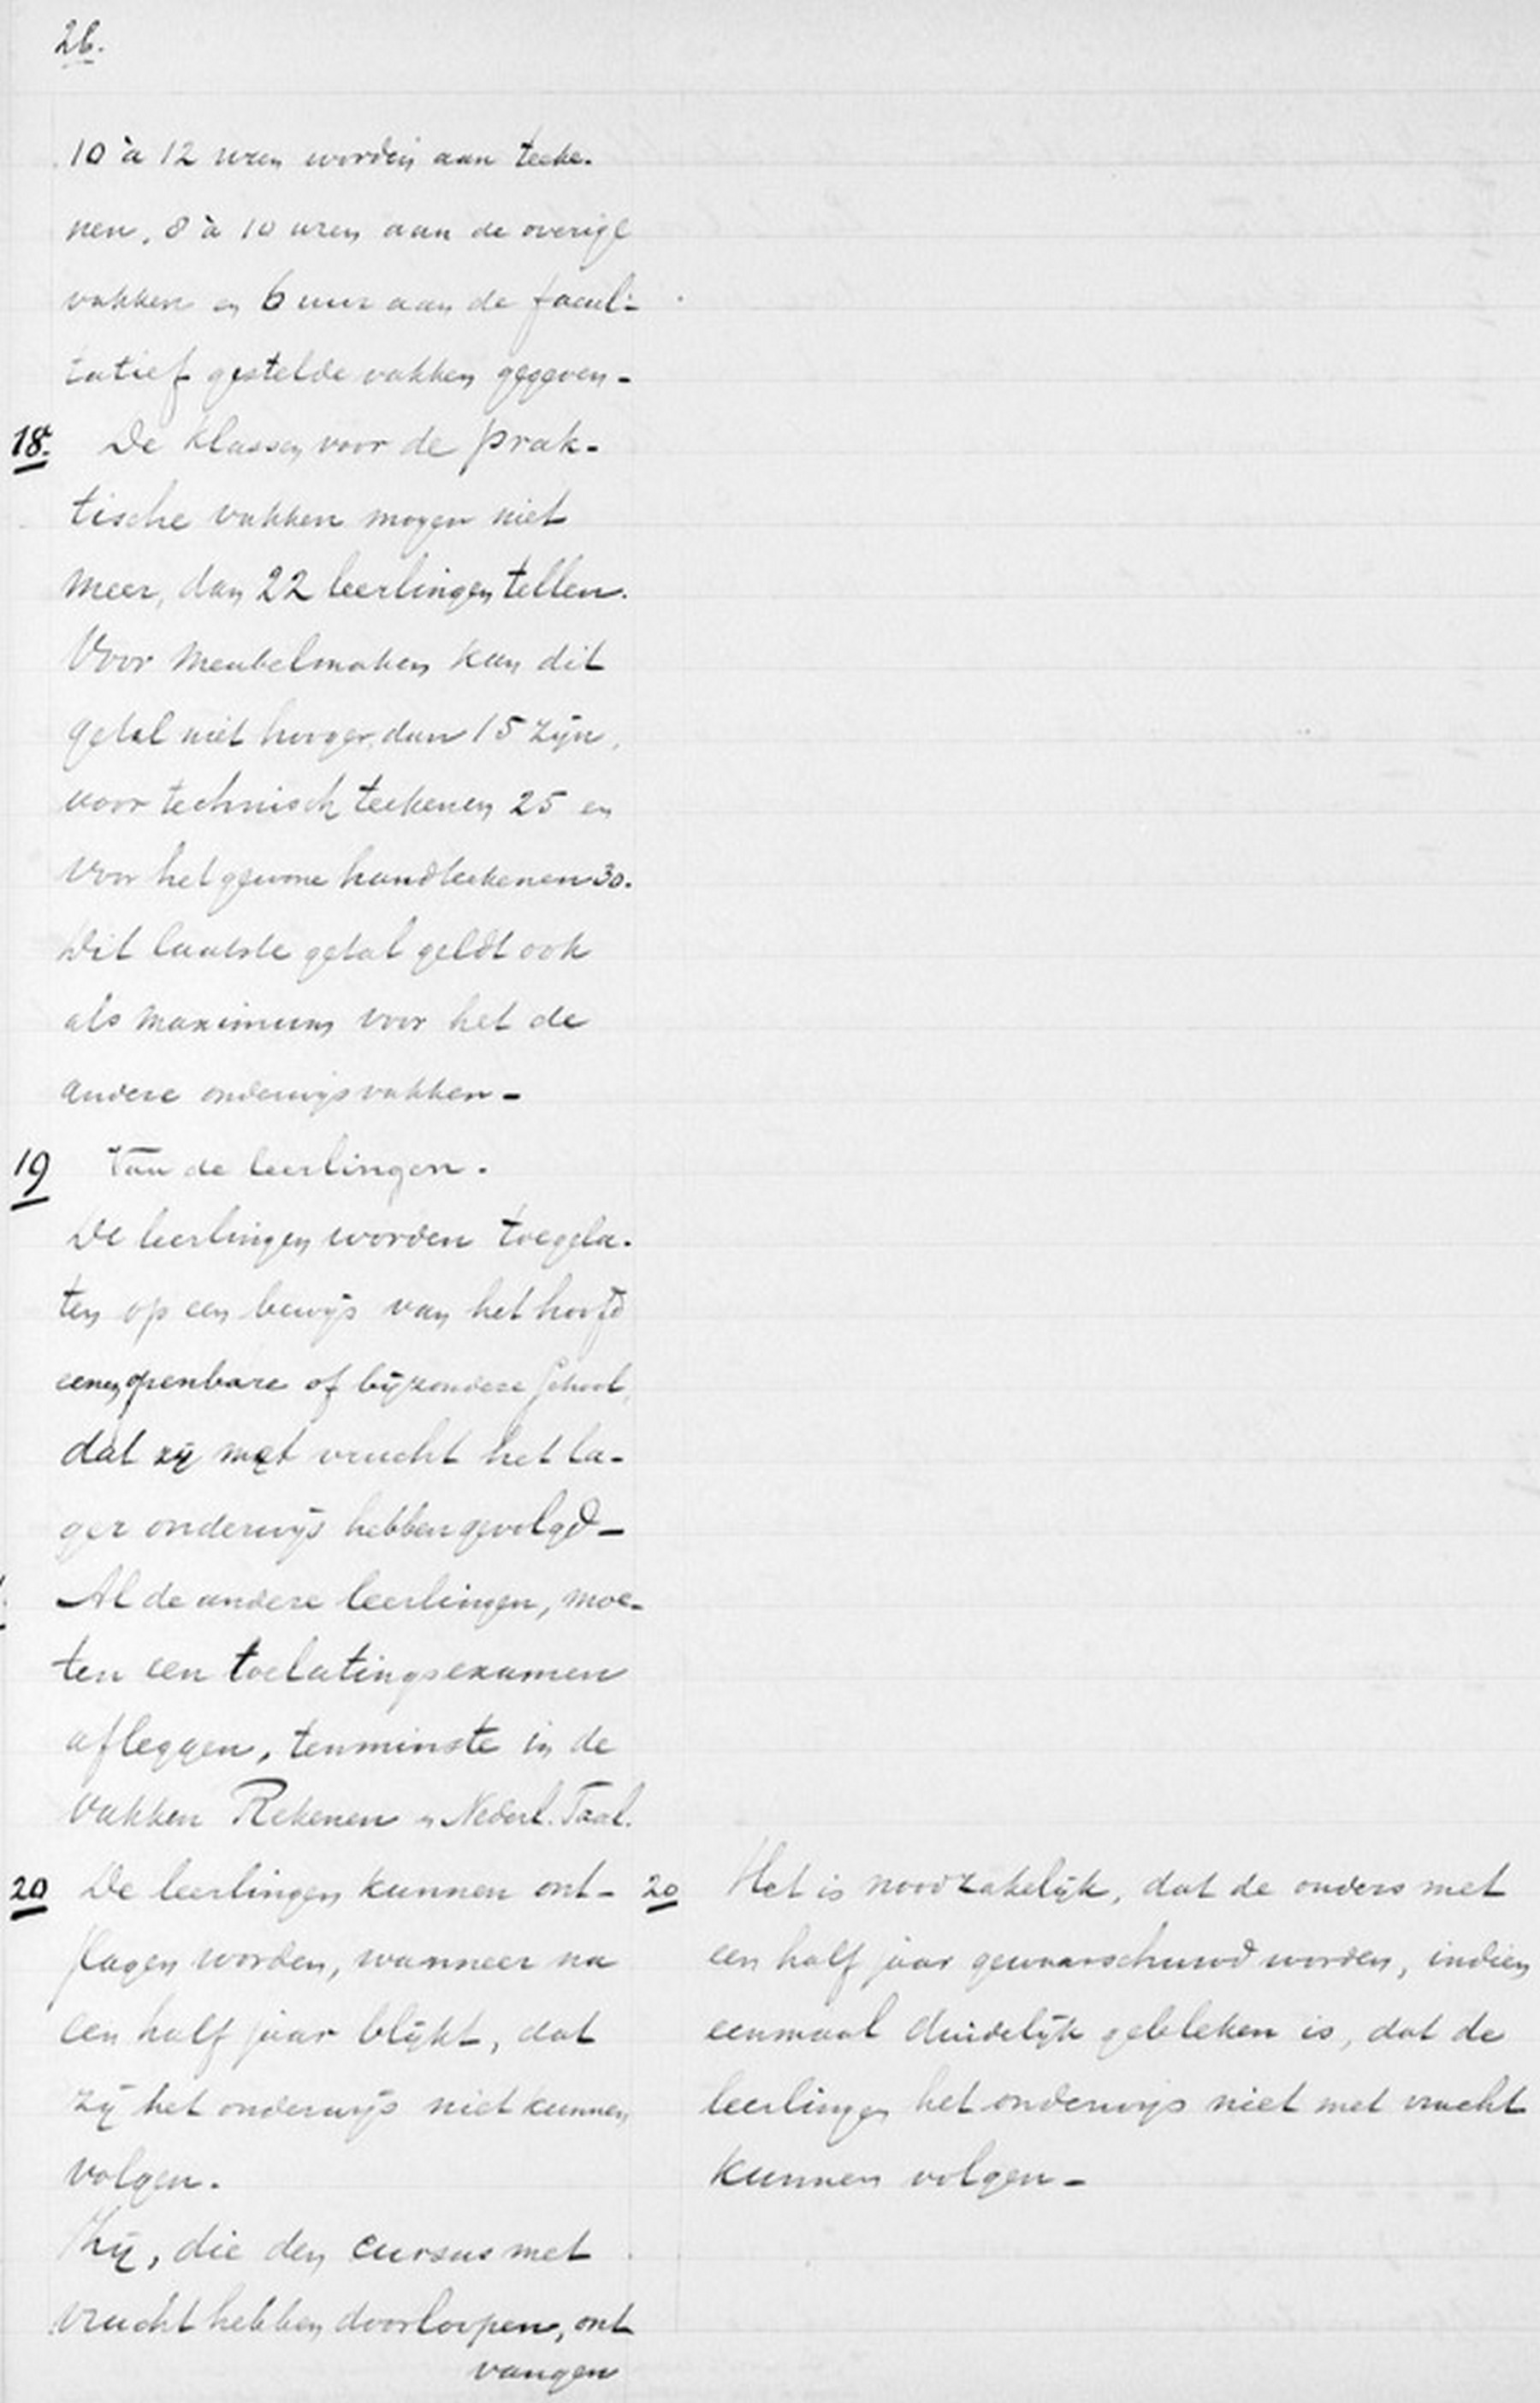 26.
10 à 12 uren worden aan teeke-
nen, 8 à 10 uren aan de overige
vakken en 6 uur aan de facul-
tatief gestelde vakken gegeven -
18. De klassen voor de prak-
tische vakken mogen niet
meer, dan 22 leerlingen tellen.
Voor meubelmaken kan dit
getal niet hooger dan 15 zijn,
voor technisch teekenen 25 en
voor het gewone handteekenen 30.
Dit laatste getal geldt ook
als maximum voor het de
andere onderwijsvakken -
19 Van de leerlingen.
De leerlingen worden toegela-
ten op een bewijs van het hoofd
eener openbare of bijzondere School,
dat zij met vrucht het la-
ger onderwijs hebben gevolgd -
Al de andere leerlingen, moe-
ten een toelatingsexamen
afleggen, tenminste in de
vakken Rekenen en Nederl. Taal.
20 De leerlingen kunnen ont-
slagen worden, wanneer na
een half jaar blijkt, dat
zij het onderwijs niet kunnen
volgen.
Zij, die den cursus met
vrucht hebben doorloopen, ont
vangen
20 Het is noodzakelijk, dat de ouders met
een half jaar gewaarschuwd worden, indien
eenmaal duidelijk gebleken is, dat de
leerlingen het onderwijs niet met vrucht
kunnen volgen -